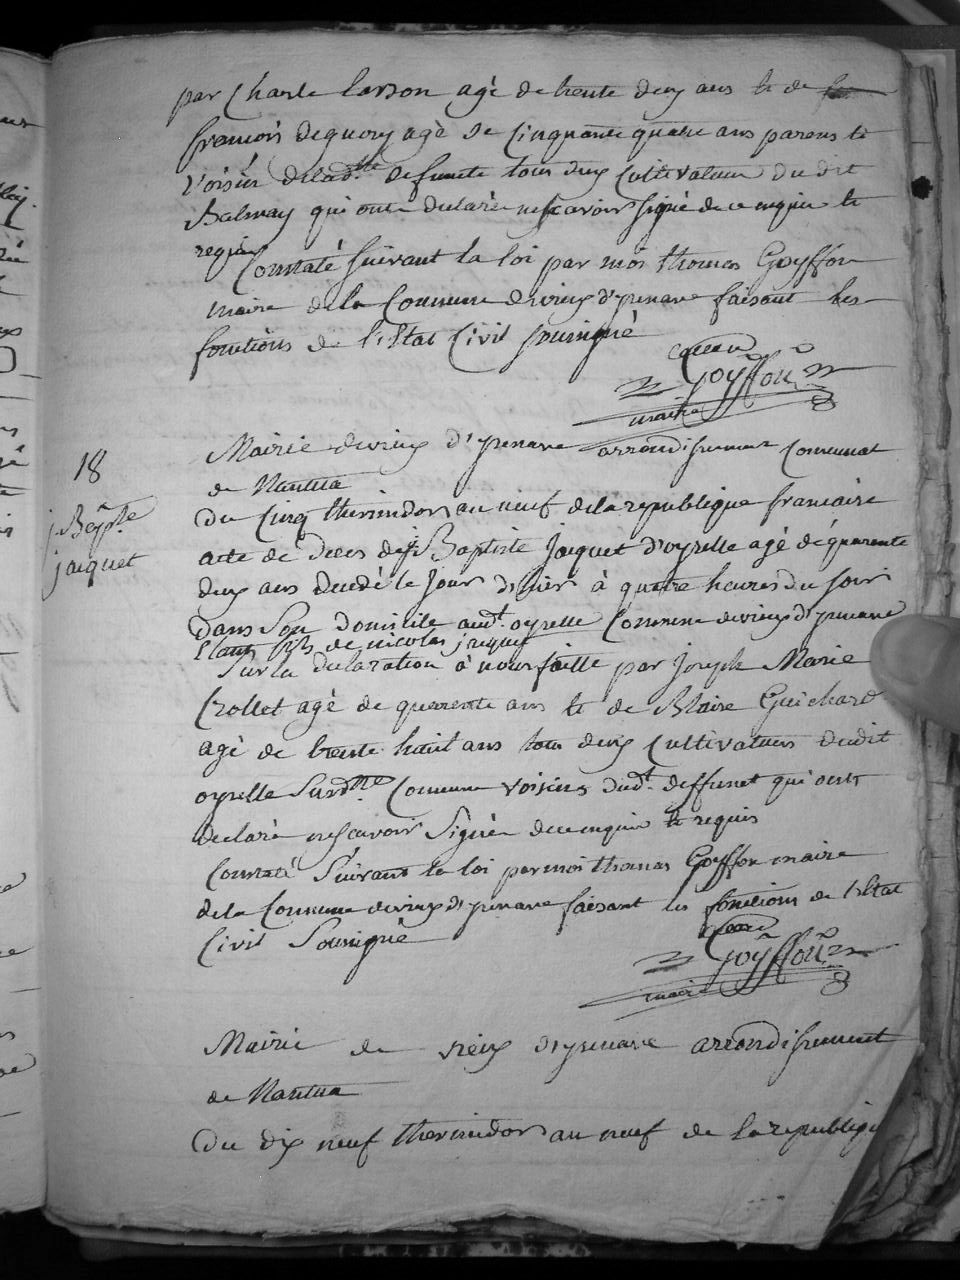 par Charle Larson agè de trente deux ans et de
francois deguery agè de Cinquante quatre ans parens et
Voisin deladtte defunete tous deux Cultivateur dudit
Balmay qui ont declarè nescavoir signé dece enquie et
requie
Constaté suivant la loi par moi thomas Goyffon
maire dela Commune devieux d'yzenave faisant les
fonctions de l'Etat Civil soussignè
Goyffon
maire
Mairie devieux d'yzenave arrondissement Communal
de Nantua
18
j. Bapte
jacquet
Du Cinq thermidor an neuf dela republique francaise
acte de Deces de j. Baptiste jacquet d'oyselle agè de quarente
deux ans decedé le jour d'hier à quatre heures du soir
dans Son domicile audt. oyselle Commune devieux d'yzenave
Etant fils de nicolas jacquet
Sur la declaration à nous faitte par joseph Marie
Crollet agè de quarente ans et de Blaise Guichard
agè de trente huit ans tous deux Cultivateurs dudit
oyselle Surdtte Commune voisins dudt. deffunet qui ont
declarè nescavoir Signèr dece enquie et requis
Constaté Suivant la loi par moi thomas Goyffon maire
dela Commune devieux d'yzenave faisant les fonctions de l'Etat
Civil Soussignè
Goyffon
maire
Mairie de vieux d'yzenave arrondissement
de Nantua
Du dix neuf thermidor an neuf de la republiq